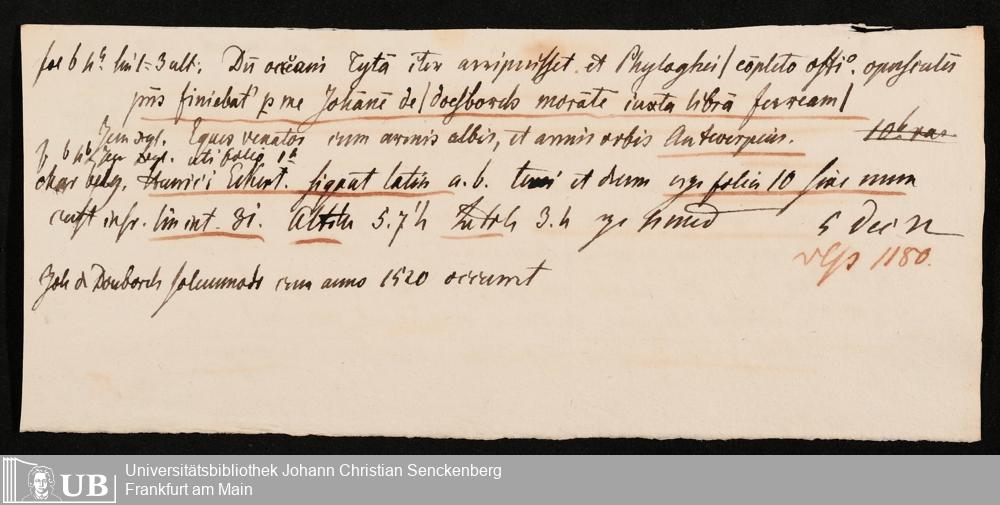 fol 6 hr lin 1-3 alt: Dū occēani Tytā iter arripuisset et Phyloghei/ cōpleto offio. opusculū
pñs finiebat' p me Johānē de/doesborch morātē iuxta librā ferream/
Item sign. Eques venator cum armis albis, et armis orbis Antwerpius.
6 hb uti folio 1a
char belg. Henrici Eckert. signat latin a.b. et dum folia 10 sine num
cust infr. lin int 31. 5.7 h 3.h 5 Dec
1180.
Joh de Douborch solummodo cum anno 1520 occurrit
UB Universitätsbibliothek Johann Christian Senckenberg
Frankfurt am Main